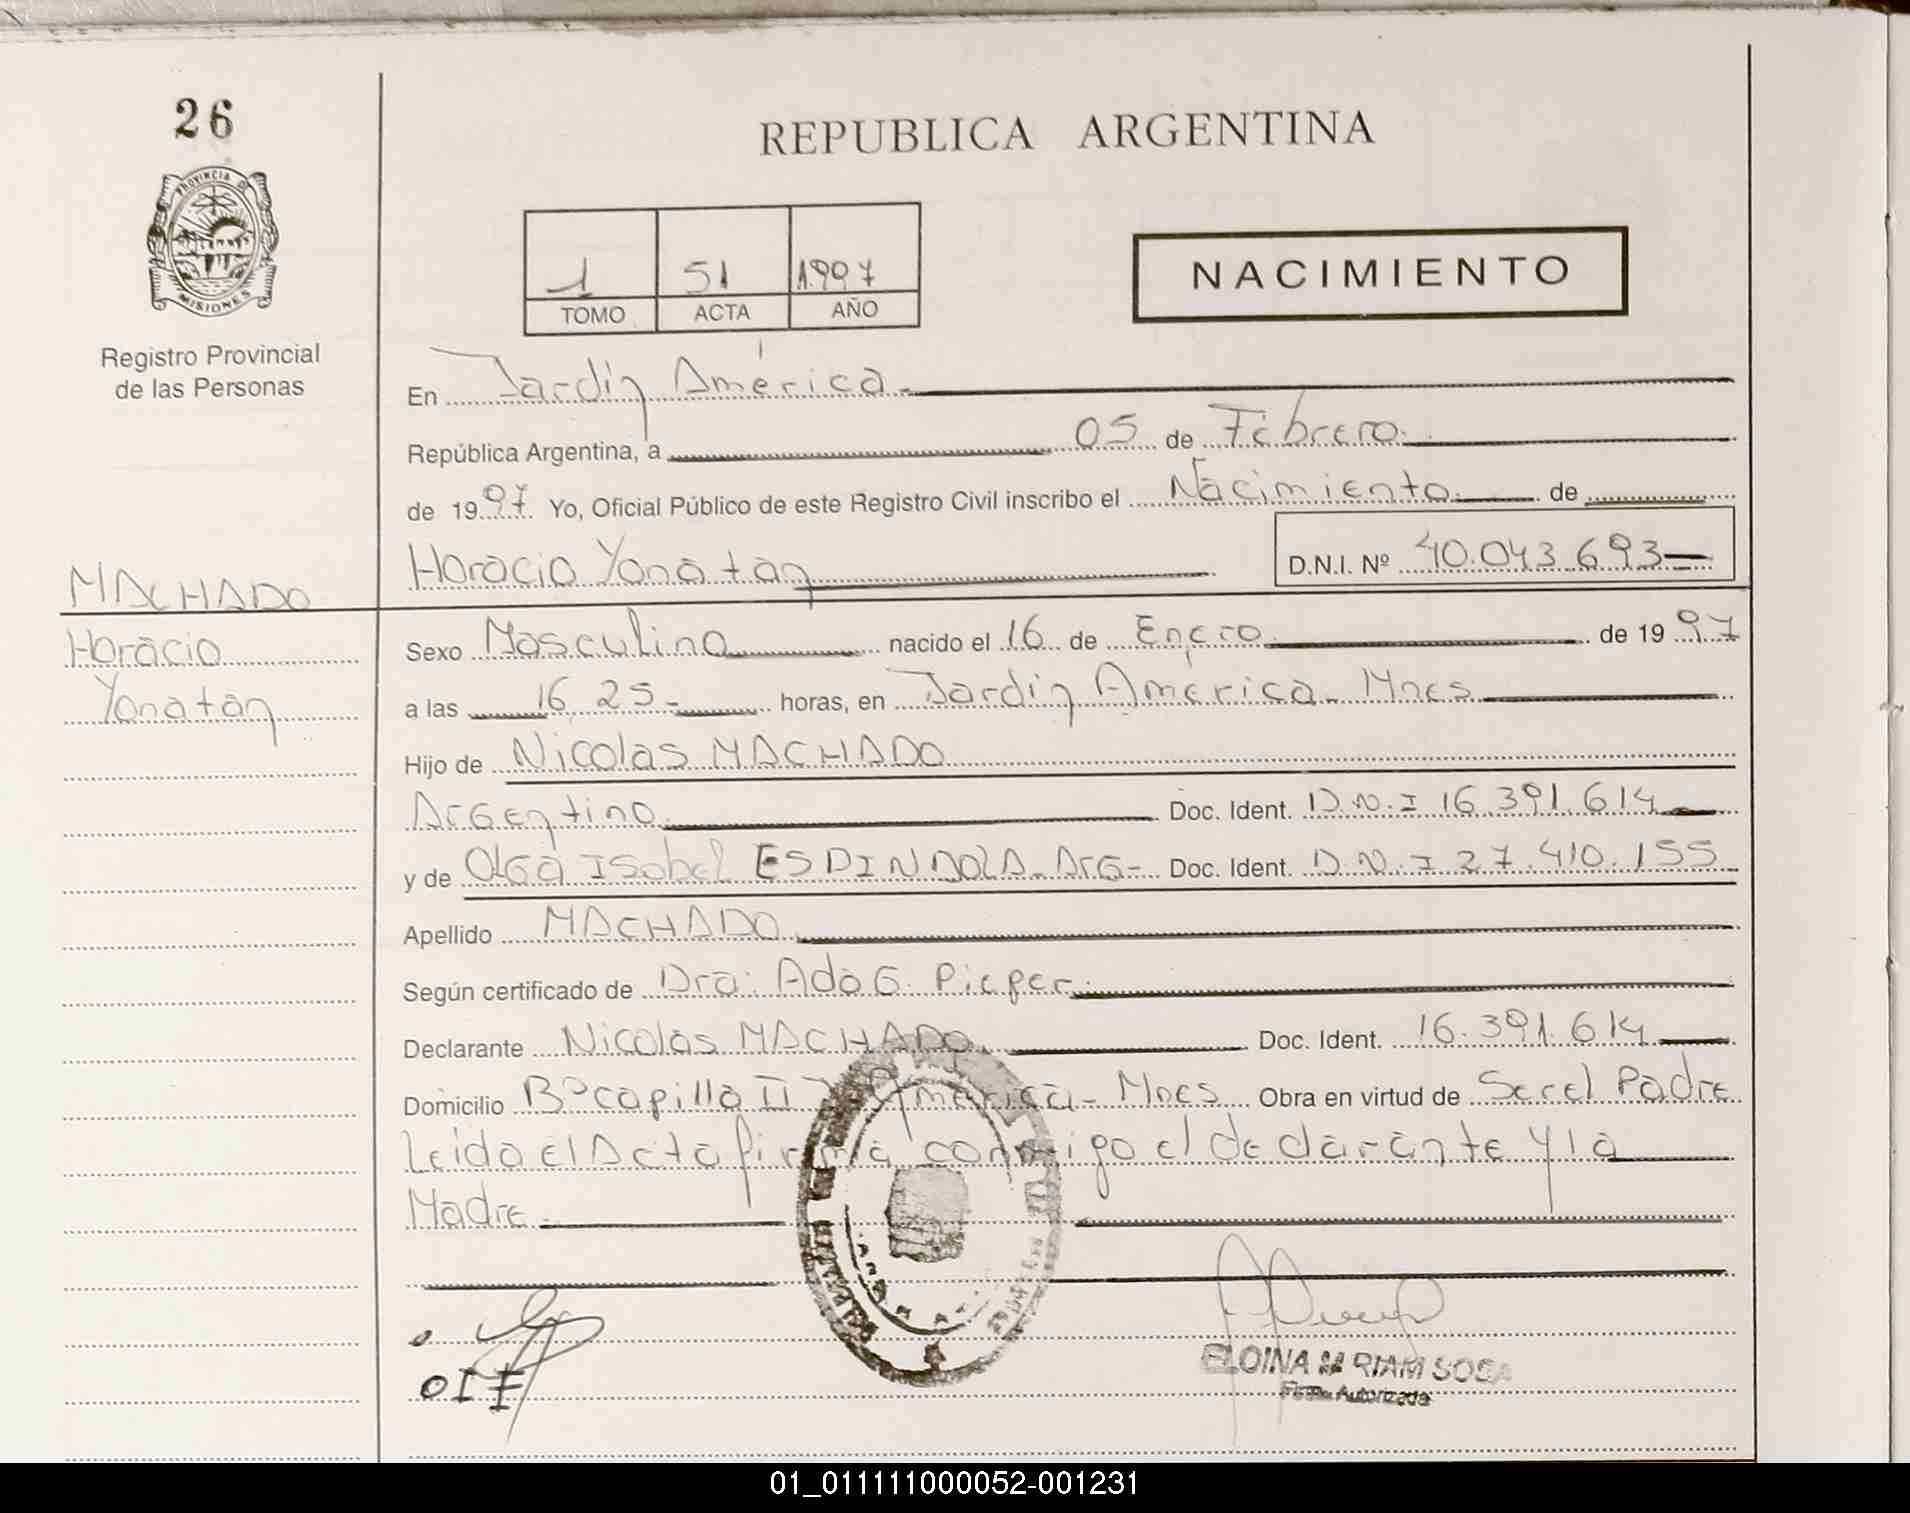 26
REPUBLICA ARGENTINA
PROVINCIA DE
MISIONES
Registro Provincial
de las Personas
1 51 1.997
TOMO ACTA AÑO
NACIMIENTO
En Jardin América.-
República Argentina, a 05 de Febrero.
de 1997. Yo, Oficial Público de este Registro Civil inscribo el Nacimiento. de
Horacio Yonatan
D.N.I. Nº 40.043.693
MACHADO
Horacio
Yonatan
Sexo Masculino nacido el 16 de Enero de 1997
a las 16,25- horas, en Jardin América- Mnes
Hijo de Nicolas MACHADO
Argentino Doc. Ident. D.N.I 16.391.614
y de Olga Isabel ESPINDOLA-Arg- Doc. Ident. D.N.I 27.410.155
Apellido MACHADO
Según certificado de Dra: Ada G. Pieper
Declarante Nicolas MACHADO Doc. Ident. 16.391.614
Domicilio Bº Capilla II J. America- Mnes Obra en virtud de Ser el Padre
Leida el Acta firma conmigo el declarante y la
Madre
OIF
ELOINA MIRIAM SOSA
Firma Autorizada
01_011111000052-001231